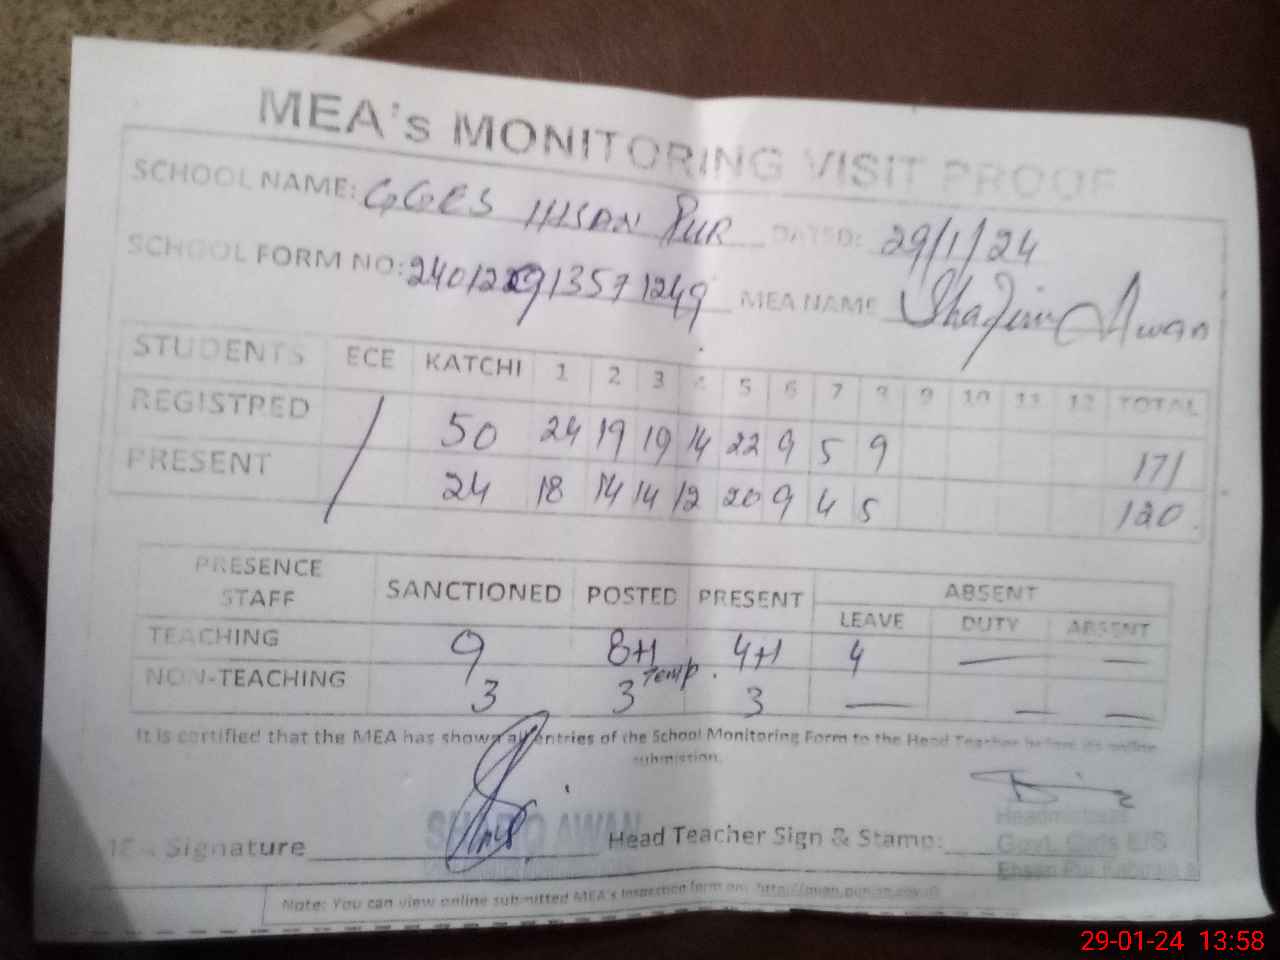 MEA's MONITORING VISIT PROOF
SCHOOL NAME: GGES IHSAN PUR DATED: 29/1/24
SCHOOL FORM NO: 240122913571249 MEA NAME Awan
STUDENTS ECE KATCHI 1 2 3 4 5 6 7 8 9 10 11 12 TOTAL
REGISTRED / 50 24 19 19 14 22 9 5 9 171
PRESENT 24 18 14 14 12 20 9 4 5 120
PRESENCE STAFF SANCTIONED POSTED PRESENT ABSENT
LEAVE DUTY ABSENT
TEACHING 9 8+1 Temp. 4+1 4 — —
NON-TEACHING 3 3 3 — — —
It is certified that the MEA has shown all entries of the School Monitoring Form to the Head Teacher before its online
submission.
Signature AWAN Head Teacher Sign & Stamp:
Headmistress
Govt. Girls E/S
Ehsan Pur
Note: You can view online submitted MEA's Inspection form on:
29-01-24 13:58